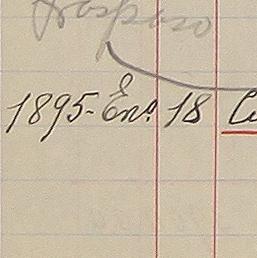 Traspaso
1895- Enº 18